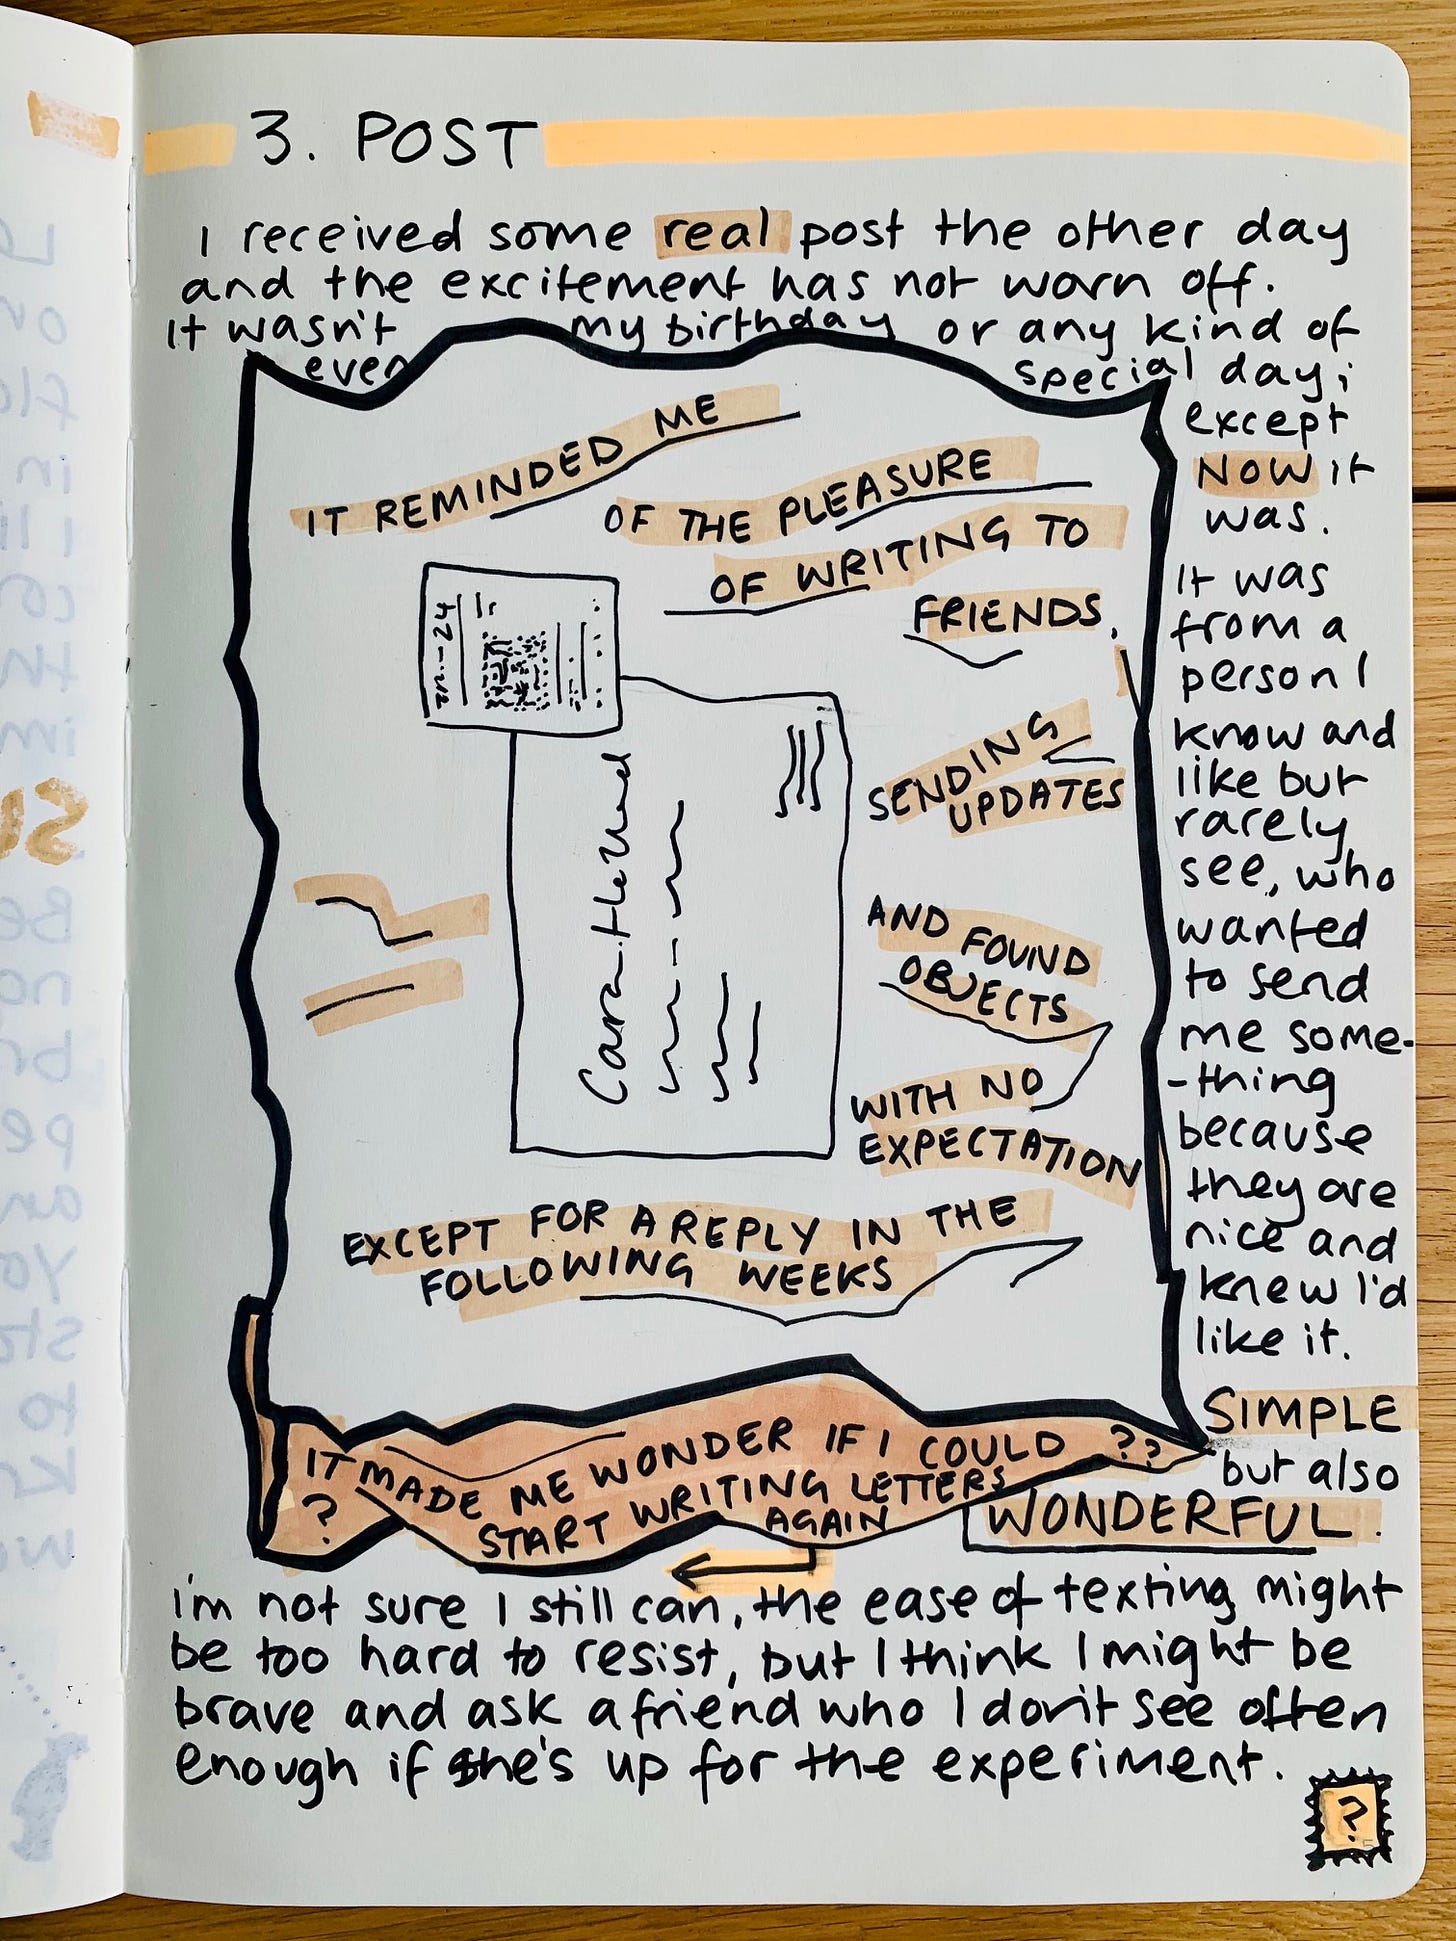 3. POST
I received some real post the other day
and the excitement has not worn off.
It wasn't my birthday or any kind of
even special day;
except
NOW it
was.
It was
from a
person I
know and
like but
rarely
see, who
wanted
to send
me some-
-thing
because
they are
nice and
knew I'd
like it.
SIMPLE
but also
WONDERFUL.
IT REMINDED ME
OF THE PLEASURE
OF WRITING TO
FRIENDS,
SENDING
UPDATES
AND FOUND
OBJECTS
WITH NO
EXPECTATION
EXCEPT FOR A REPLY IN THE
FOLLOWING WEEKS
24
Cara
IT MADE ME WONDER IF I COULD ??
? START WRITING LETTERS
AGAIN
i'm not sure I still can, the ease of texting might
be too hard to resist, but I think I might be
brave and ask a friend who I don't see often
enough if she's up for the experiment.
?
5